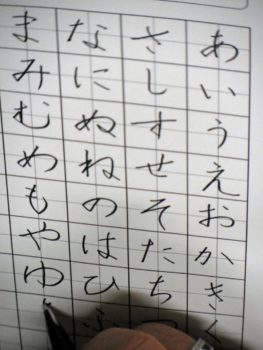 あいうえおかきく
さしすせそたちつ
なにぬねのはひふ
まみむめもやゆ